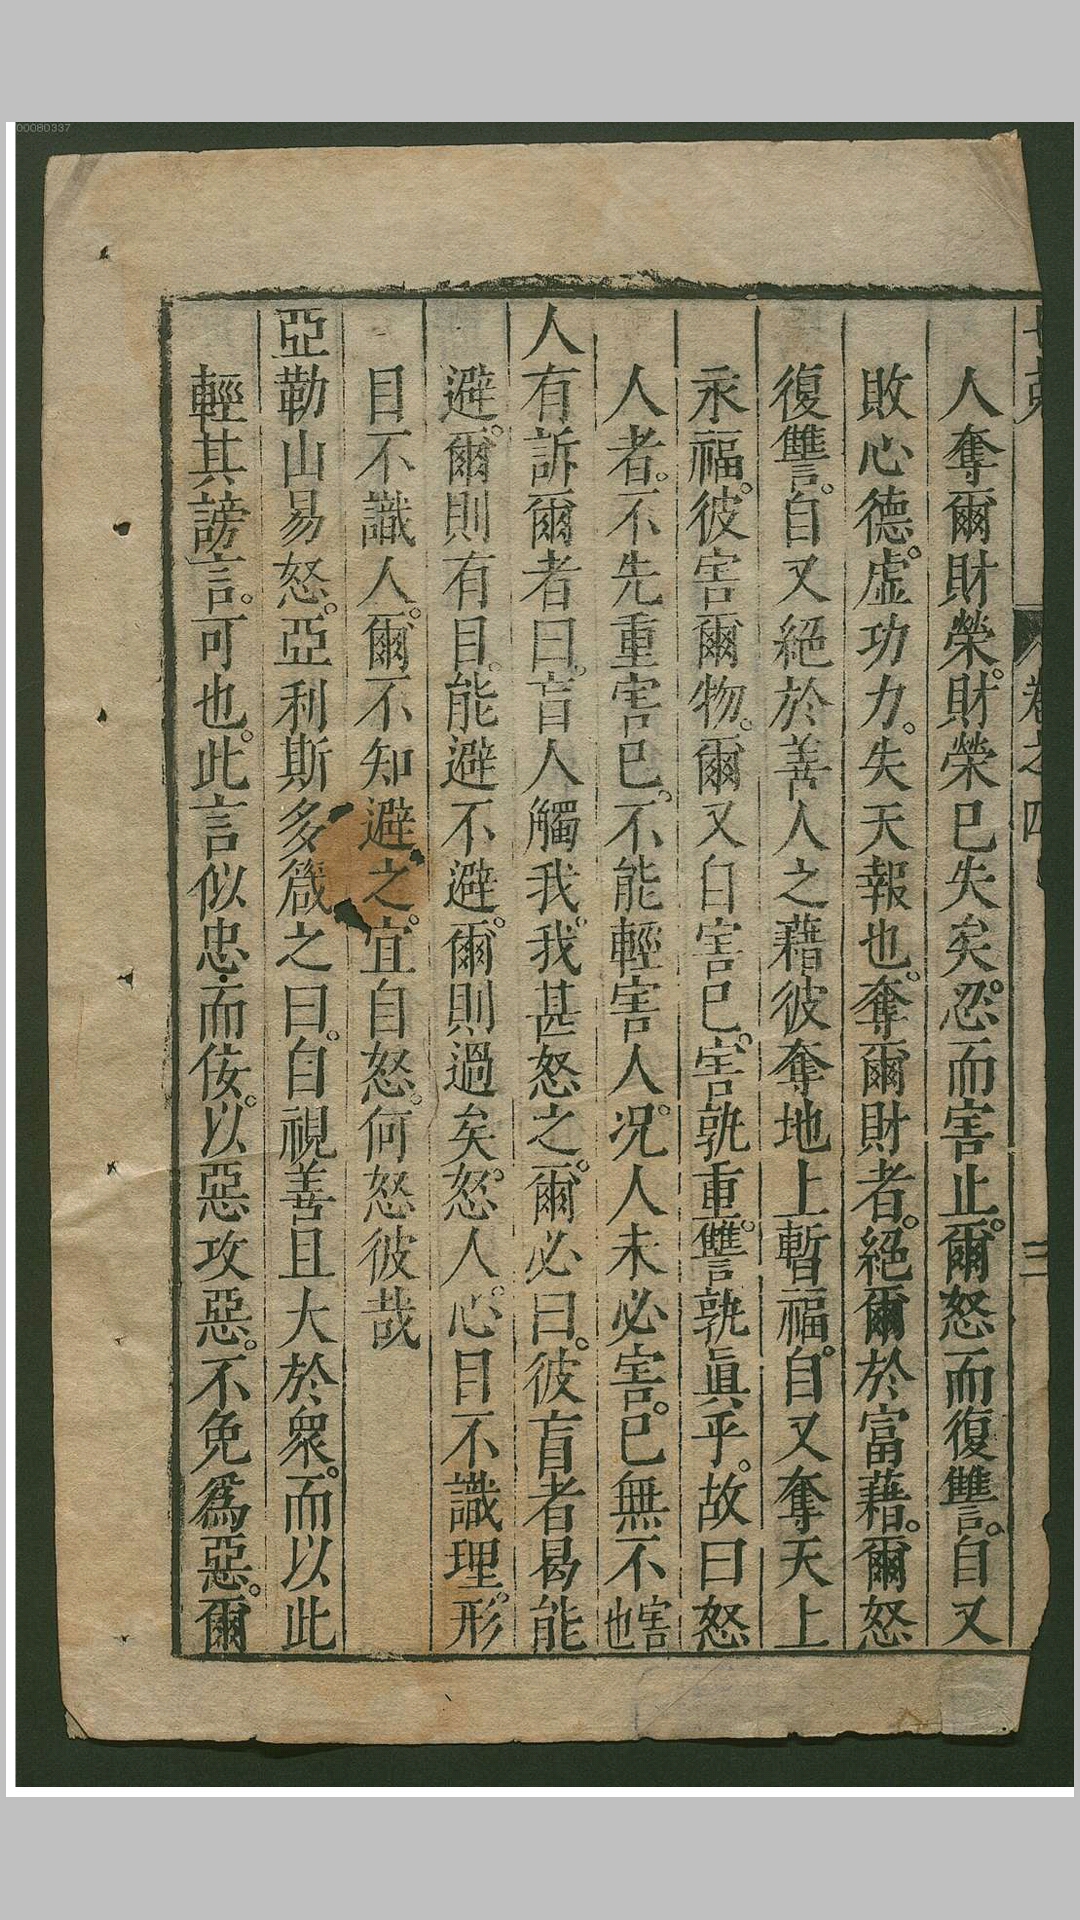 00080337
七克 卷之四 三
人奪爾財榮。財榮已失矣。忍而害止。爾怒而復讐。自又
敗心德。虛功力。失天報也。奪爾財者。絕爾於富藉。爾怒
復讐。自又絕於善人之藉彼奪地上暫福。自又奪天上
永福。彼害爾物。爾又自害已。害孰重。讐孰眞乎。故曰怒
人者。不先重害已。不能輕害人。况人未必害。已無不害也
人有訴爾者曰。盲人觸我。我甚怒之。爾必曰。彼盲者曷能
避。爾則有目。能避不避。爾則過矣。怒人。心目不識理。形
目不識人。爾不知避之。宜自怒。何怒彼哉
亞勒山易怒。亞利斯多箴之曰。自視善且大於衆。而以此
輕其謗言。可也。此言似忠而侫。以惡攻惡。不免爲惡。爾